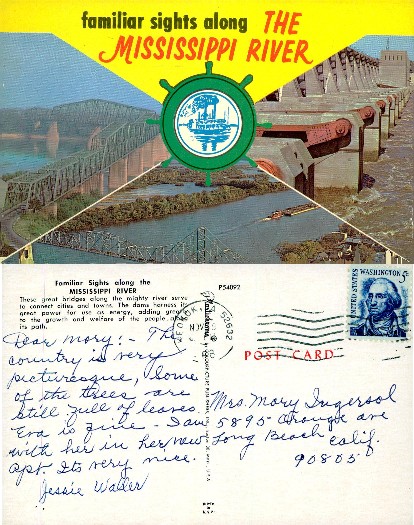 familiar sights along THE
MISSISSIPPI RIVER
Familiar Sights along the
MISSISSIPPI RIVER
These great bridges along the mighty river serve
to connect cities and towns. The dams harness its
great power for use as energy, adding greatly
to the growth and welfare of the people along
its path.
P54092
KEOKUK
NOV
52632
UNITED STATES
WASHINGTON 5c
POST CARD
Dear Mary:- The
country is very
picturesque, some
of the trees are
still full of leaves.
Eva is fine - I am
with her in her new
apt. Its very nice.
Jessie Waller
Mrs. Mary Ingersol
5895 Orange ave
Long Beach Calif.
90805